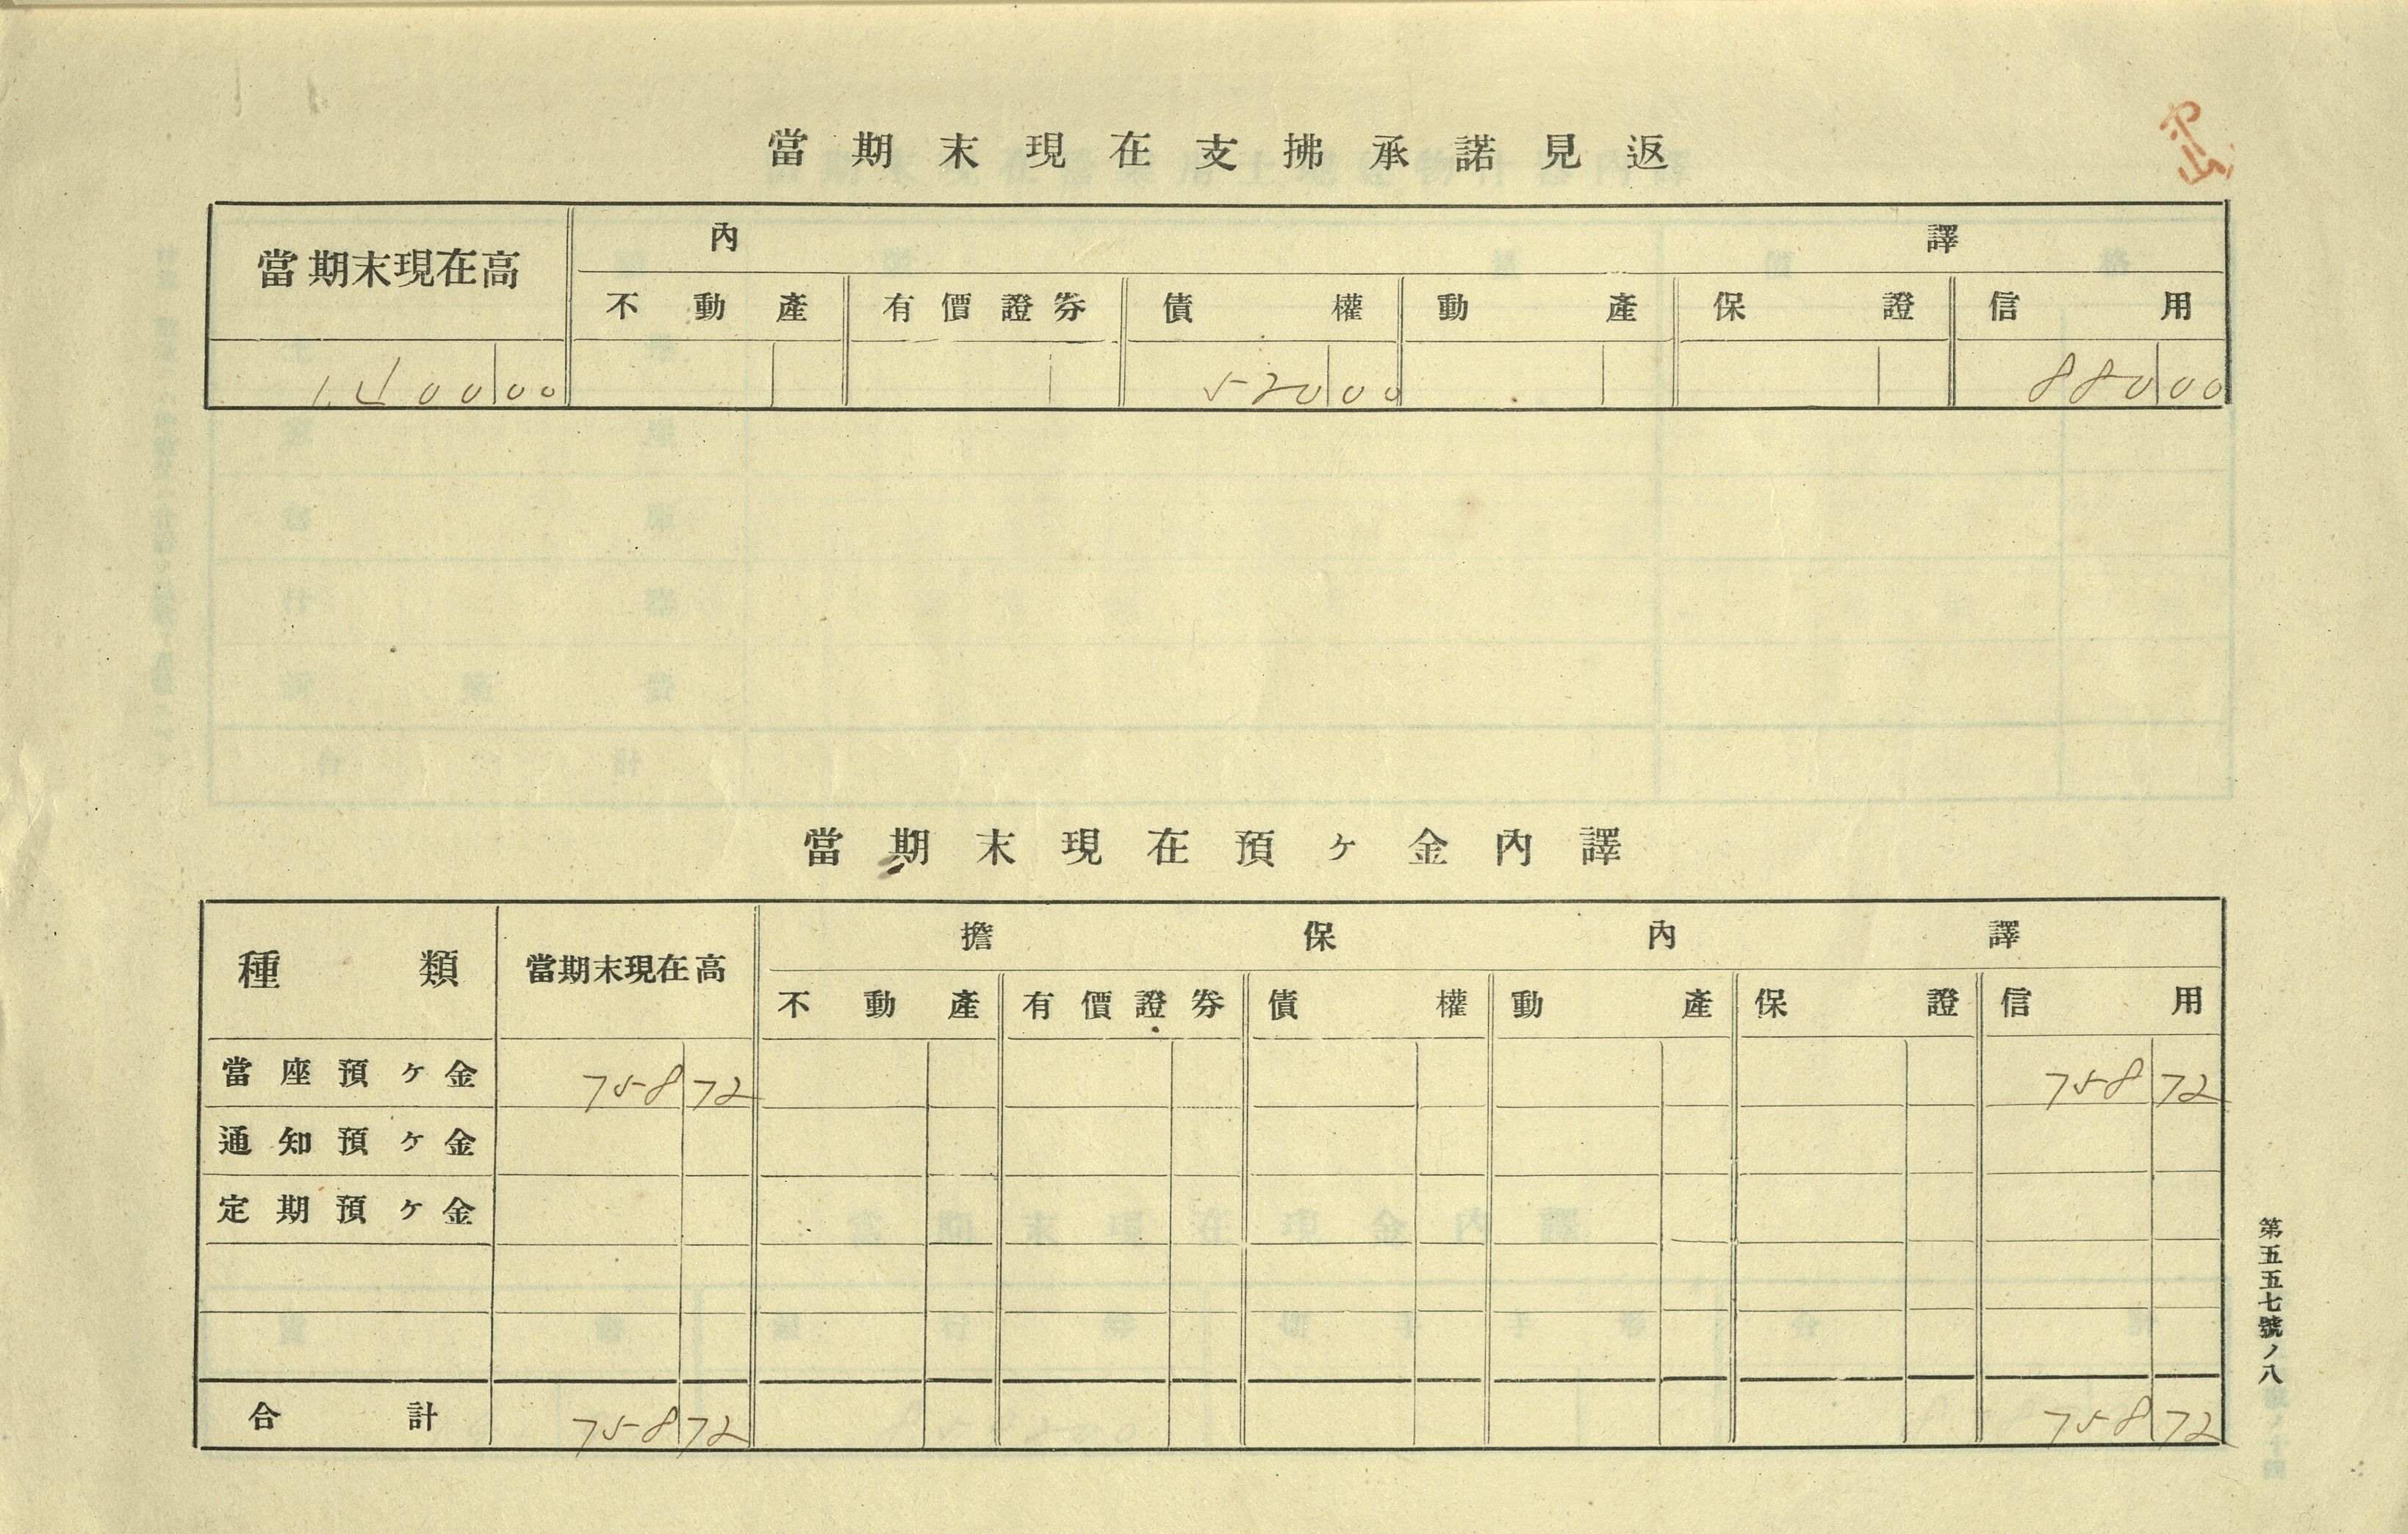 當期末現在支拂承諾見返
當期末現在高 內譯
不動產 有價證券 債權 動產 保證 信用
1,400 00 520 00 880 00
當期末現在預ヶ金內譯
種類 當期末現在高 擔保內譯
不動產 有價證券 債權 動產 保證 信用
當座預ヶ金 758 72 758 72
通知預ヶ金
定期預ヶ金
合計 758 72 758 72
第五五七號ノ八